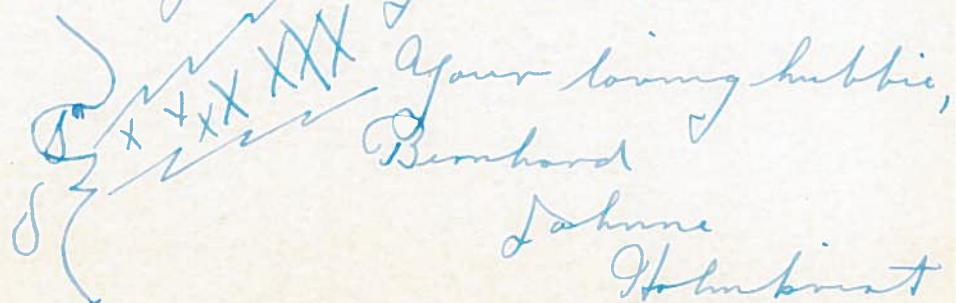 x x x X X X X
Your loving hubbie,
Bernhard
Johnne
Holmkvist